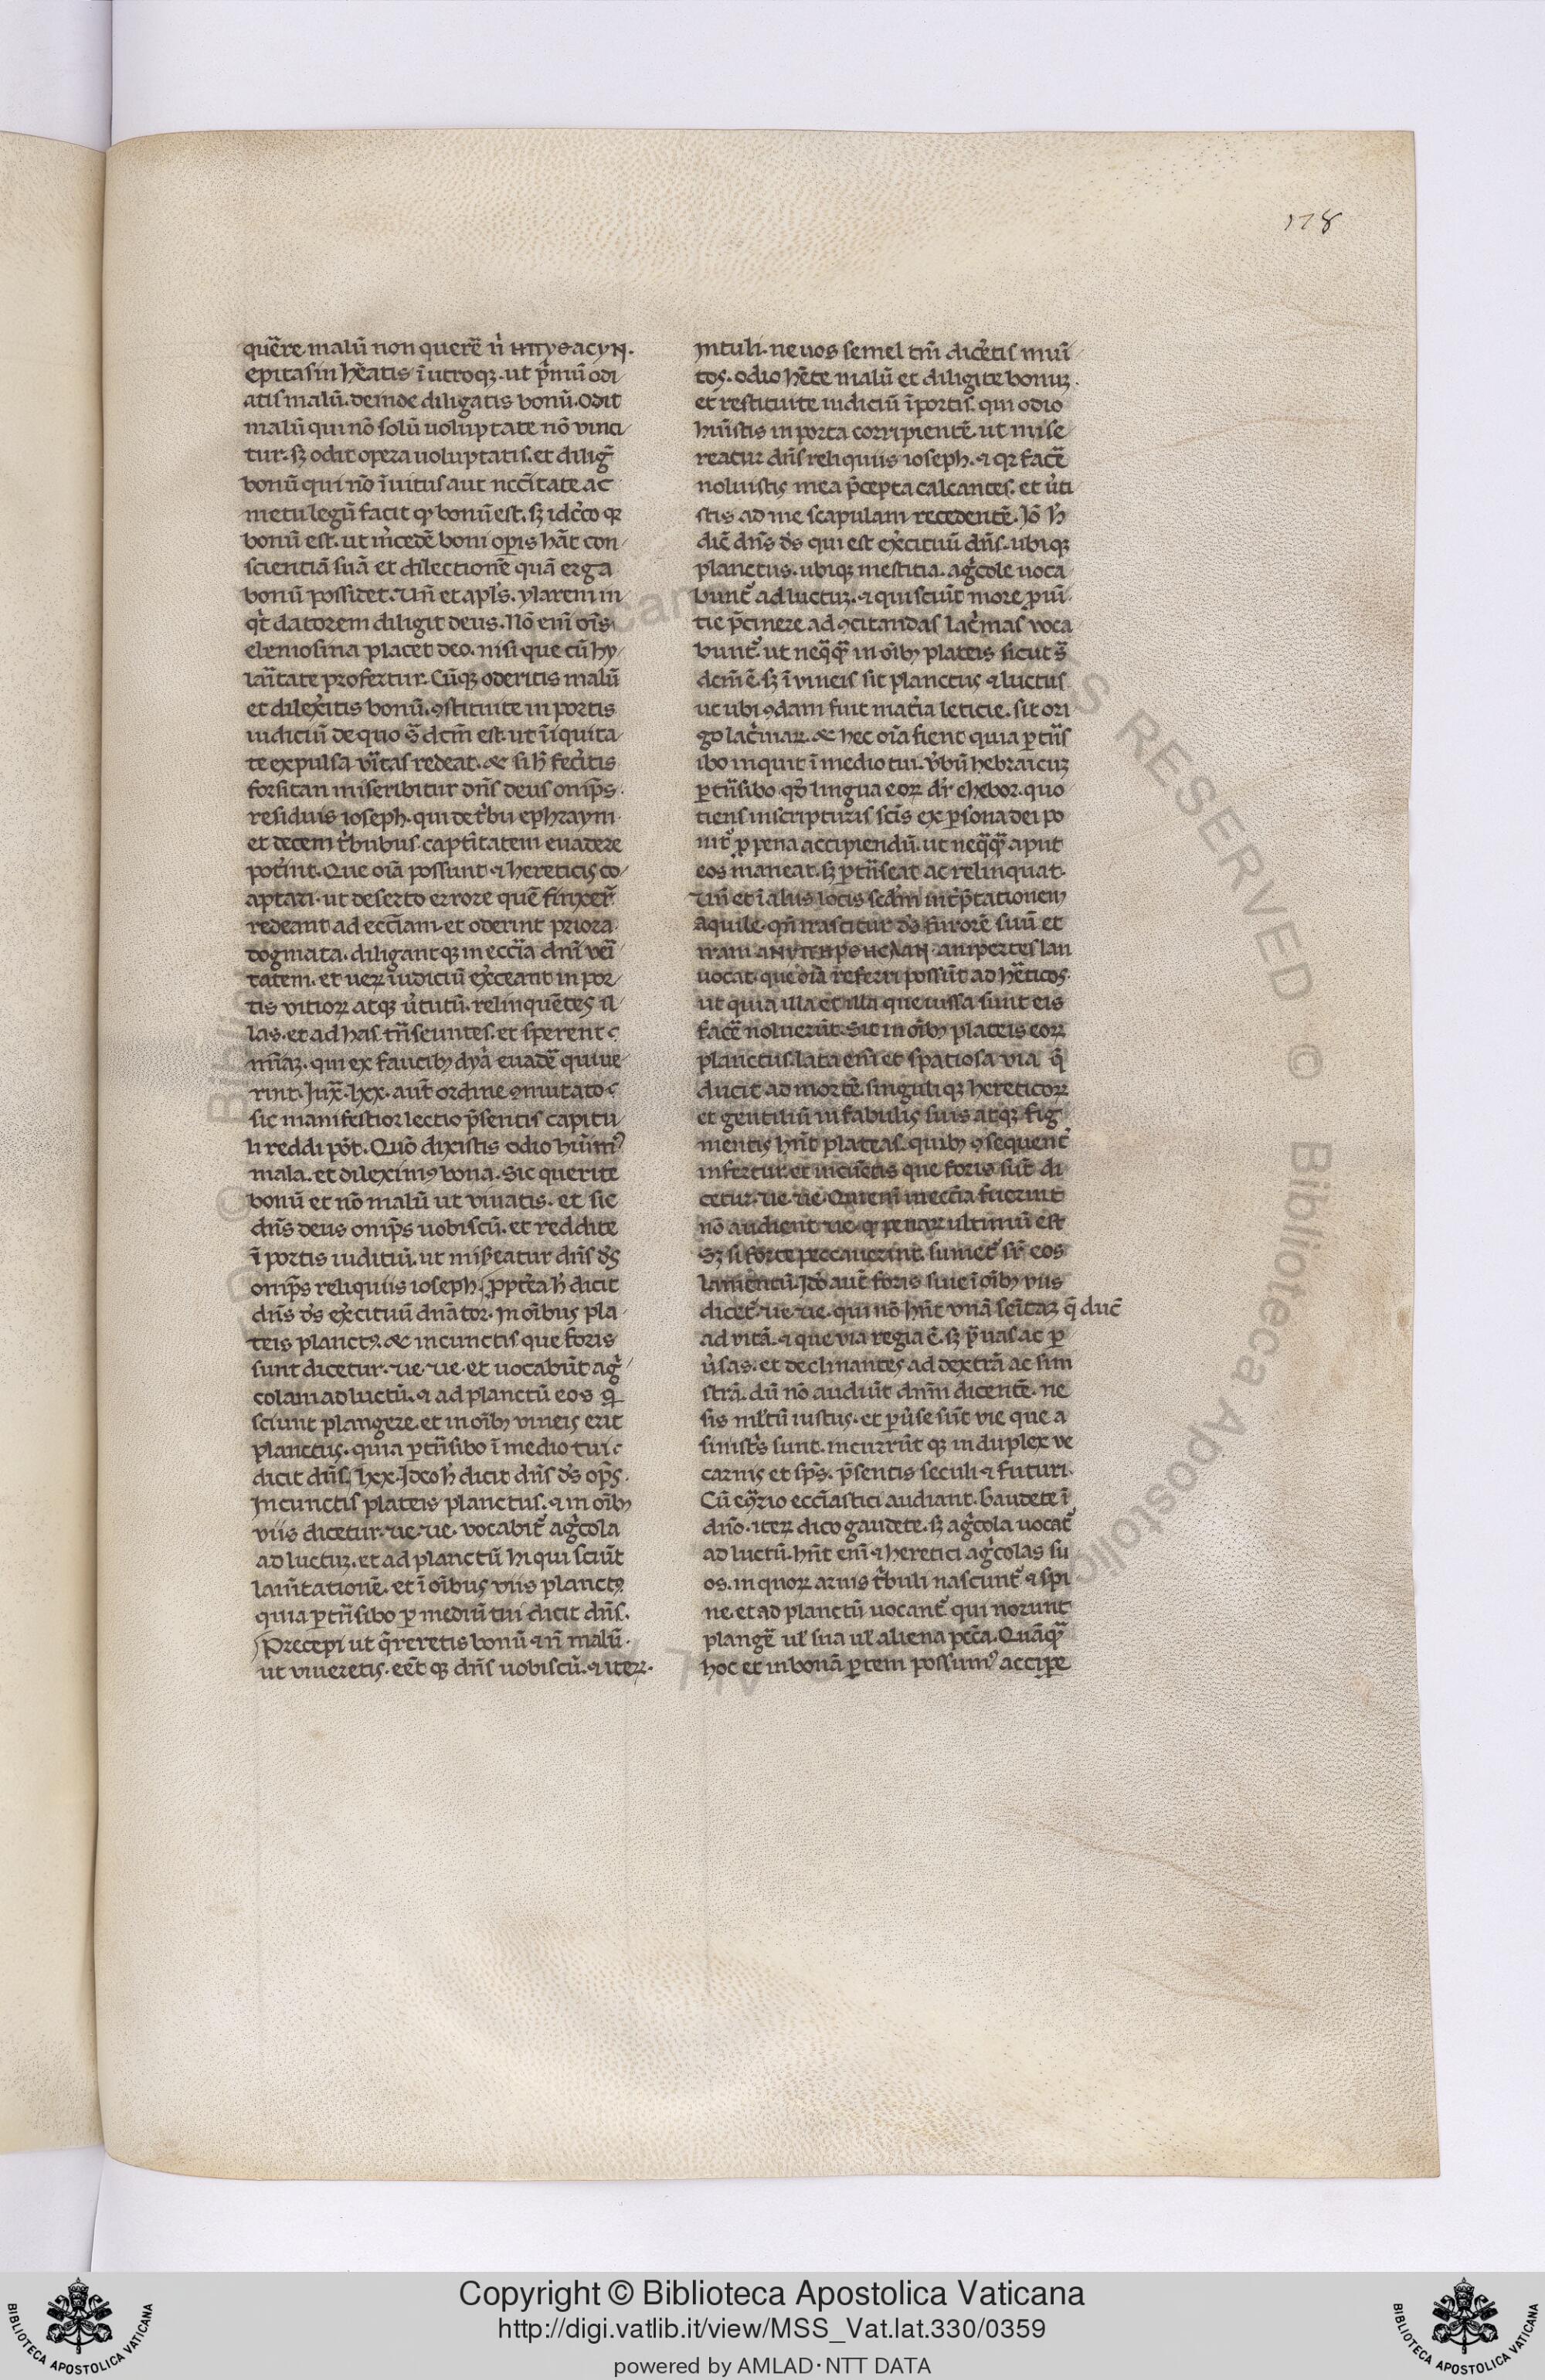 178
quẽre malũ non querẽ ũ ΗΠΥΘΑCΥΝ.
epitasin hẽatis ĩ utroqꝫ. ut p̃mũ odi
atis malũ. deinde diligatis bonũ. Odit
malũ qui nõ solũ uoluptate nõ vinci
tur. sꝫ odit opera uoluptatis. et diligͥ
bonũ qui nõ ĩuitus aut nccĩtate ac
metu legũ facit qͦ bonũ est. sꝫ idc̾co qꝛ
bonũ est. ut m̾cedẽ boni opis hãt con
scientiã suã et dilectionẽ quã erga
bonũ possidet. Vñ et apl̾s. ylarem in
qͥt datorem diligit deus. Nõ enĩ oĩs
elemosina placet deo. nisi que cũ hy
lãitate profertur. Cũqꝫ oderitis malũ
et dilex̾itis bonũ. ꝯstituite in portis
iudiciũ de quo sͣ dcm̃ est. ut ĩiquita
te expulsa ṽitas redeat. & si h̾ fec̾itis
forsitan miseribitur dñs deus omp̃s.
residuis ioseph. qui de tͥbu ephraym
et decem tͥbubus captĩtatem euadere
pot̾int. Que oĩa possunt ⁊ hereticis co
aptari. ut deserto errore quẽ finxer̃
redeant ad eccl̃iam. et oderint priora
dogmata. diligantqꝫ in eccl̃ia dnĩ veĩ
tatem. et uerꝫ iudiciũ ex̾ceant in por
tis vitioꝝ atqꝫ ũtutũ. relinquẽtes il
las. et ad has tñseuntes. et sperent
mĩaꝫ. qui ex faucibꝫ dyã euadẽ quiue
rint. Iuxͣ. lxx. aut̃ ordine ꝯmutato
sic manifestior lectio p̃sentis capitu
li reddi põt. Quõ dixistis odio hũimꝰ
mala. et dileximꝰ bona. sic querite
bonũ et nõ malũ ut viuatis. et sic
dñs deus omp̃s uobiscũ. et reddite
ĩ portis iuditiũ. ut mis̾eatur dñs dꝰs
omp̃s reliquiis ioseph. Ꝓpt̾ea h̾ dicit
dñs dꝰs ex̾cituũ dnãtor. In oĩbus pla
teis planctꝰ. & in cunctis que foris
sunt dicetur. ue. ue. et uocabũt agͥ
colam ad luctũ. ⁊ ad planctũ eos qͥ
sciunt plangere. et in oĩbꝫ vineis erit
planctus. quia ꝑtñsibo ĩ medio tui
dicit dñs. lxx. Ideo h̾ dicit dñs dꝰs op̃s.
In cunctis plateis planctus. ⁊ in oĩbꝫ
viis dicetur. ue. ue. vocabitᷣ agͥcola
ad luctuꝫ. et ad planctũ hi qui sciũt
lam̃tationẽ. et ĩ oĩbus viis planctꝰ
quia ꝑtñsibo ꝑ mediũ tui dicit dñs.
Precepi ut q̃reretis bonũ ⁊ ñ malũ.
ut viueretis. eẽt qꝫ dñs uobiscũ. ⁊ iterꝫ.
intuli. ne uos semel tm̃ dic̾etis muĩ
tos. odio hẽte malũ et diligite bonuꝫ.
et restituite iudiciũ ĩ portis. qui odio
hũistis in porta corripientẽ. ut mise
reatur dñs reliquiis ioseph. ⁊ qꝛ facẽ
noluistis mea p̃cepta calcantes. et ũti
stis ad me scapulam recedentẽ. Iõ h̾
dic̃ dñs dꝰs qui est ex̾cituũ dñs. ubiqꝫ
planctus. ubiqꝫ mestitia. agͥcole uoca
buntᷣ ad luctuꝫ. ⁊ qui sciũt more ꝓuĩ
tie p̃cinere ad ꝯcitandas lac̾mas voca
buntᷣ. ut neqͣqͣ in oĩbꝫ plateis sicut sͣ
dcm̃ ẽ. sꝫ ĩ vineis sit planctus ⁊ luctus
ut ubi ꝯdam fuit mat̾ia leticie. sit ori
go lac̾imaꝝ. & hec oĩa fient quia ꝑtñs
ibo inquit ĩ medio tui. v̾bũ hebraicuꝫ
ꝑtñsibo. qͦd lingua eoꝝ dr̃ ehebor. quo
tiens in scripturis scĩs ex ꝑsona dei po
nitᷣ. ꝓ pena accipiendũ. ut neqͣqͣ aput
eos maneat. sꝫ ꝑtñseat ac relinquat.
Vñ et ĩ aliis locis scdm̃ int̾p̃tationem
aquile. qñ irascitur dꝰs furorẽ suũ et
iram ΑΝΥΠΕΡΘΕCΙΑΝ. an̾pertesian
uocat. que oĩa referri possũt ad hẽticos.
ut quia illa et illa que iussa sunt eis
facẽ noluerũt. Sit in oĩbꝫ plateis eoꝝ
planctus. lata enĩ et spatiosa via q̃
ducit ad mortẽ. singuli qꝫ hereticoꝝ
et gentiliũ in fabulis suis atqꝫ fig
mentis hñt plateas. quibꝫ ꝯsequent̾
infertur. et in cũctis que foris sũt di
cetur. ue. ue. Qui enĩ in eccl̃ia fuerint
nõ audient ue. qͦ penitꝰ ultimũ est
Sꝫ si forte peccauerint. sumetᷣ sr̃ eos
lamentũ. Iis aut̃ foris siue ĩ oĩbꝫ viis
dicetᷣ. ue. ue. qui nõ hñt vnã semĩtaꝫ q̃ ducĩt
ad vitã. ⁊ que via regia ẽ. sꝫ p̃uas ac ꝑ
ũsas. et declinantes ad dextrã ac sini
strã. dũ nõ audiũt dnm̃ dicentẽ. ne
sis ml̾tũ iustus. et ꝑũse sũt vie que a
sinist̾s sunt. incurrũt qꝫ in duplex ve
carnis et sp̃s. p̃sentis seculi ⁊ futuri.
Cũ eͨꝯrio eccl̃iastici audiant. Gaudete ĩ
dño. iterꝫ dico gaudete. sꝫ agͥcola uocatᷣ
ad luctũ. hñt enĩ ⁊ heretici agͥcolas su
os. in quoꝝ aruis tͥbuli nascuntᷣ ⁊ spi
ne. et ad planctũ uocantᷣ qui norunt
plangẽ ul̾ sua ul̾ aliena pctã. Quãqͣ
hoc et in bonã ꝑtem possumꝰ accipe
Copyright © Biblioteca Apostolica Vaticana
http://digi.vatlib.it/view/MSS_Vat.lat.330/0359
powered by AMLAD·NTT DATA